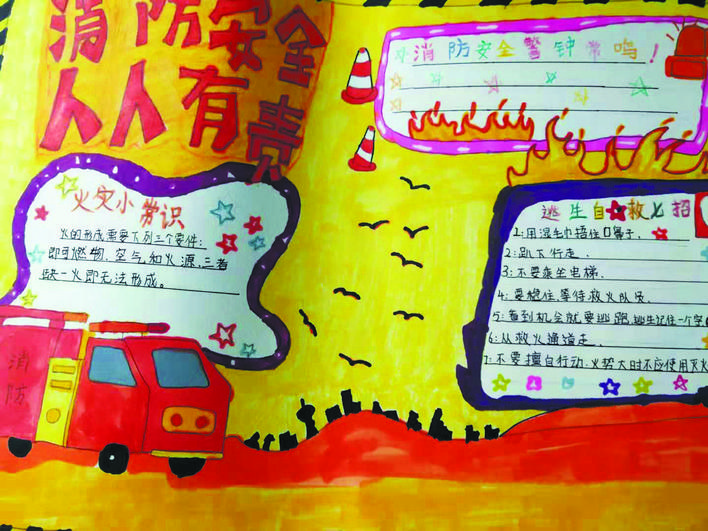 消防安全
人人有责
消防安全警钟常鸣！
火灾小常识
火的形成需要下列三个要件:
即可燃物、空气和火源,三者
缺一火即无法形成。
逃生自救七招
1:用湿毛巾捂住口鼻子.
2:趴下行走.
3:不要乘坐电梯.
4:要稳住,等待救火队员.
5:看到机会就要逃跑,逃生记住一个字
6:从救火通道走.
7:不要擅自行动.火势大时不应使用灭火
消
防